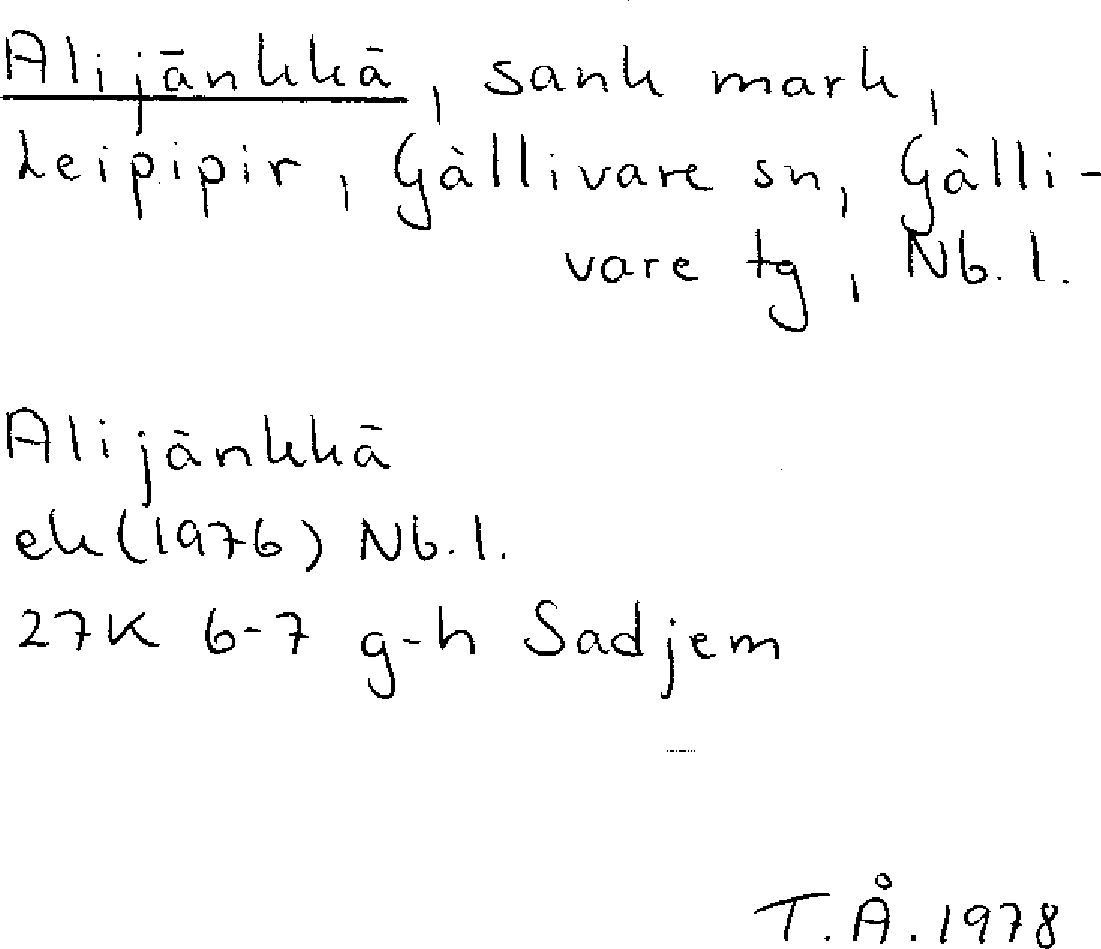 Alijänkkä, sank mark,
Leipipir, Gällivare sn, Gälli-
vare tg, Nb.l.
Alijänkkä
ek (1976) Nb.l.
27K 6-7 g-h Sadjem
T.Å.1978